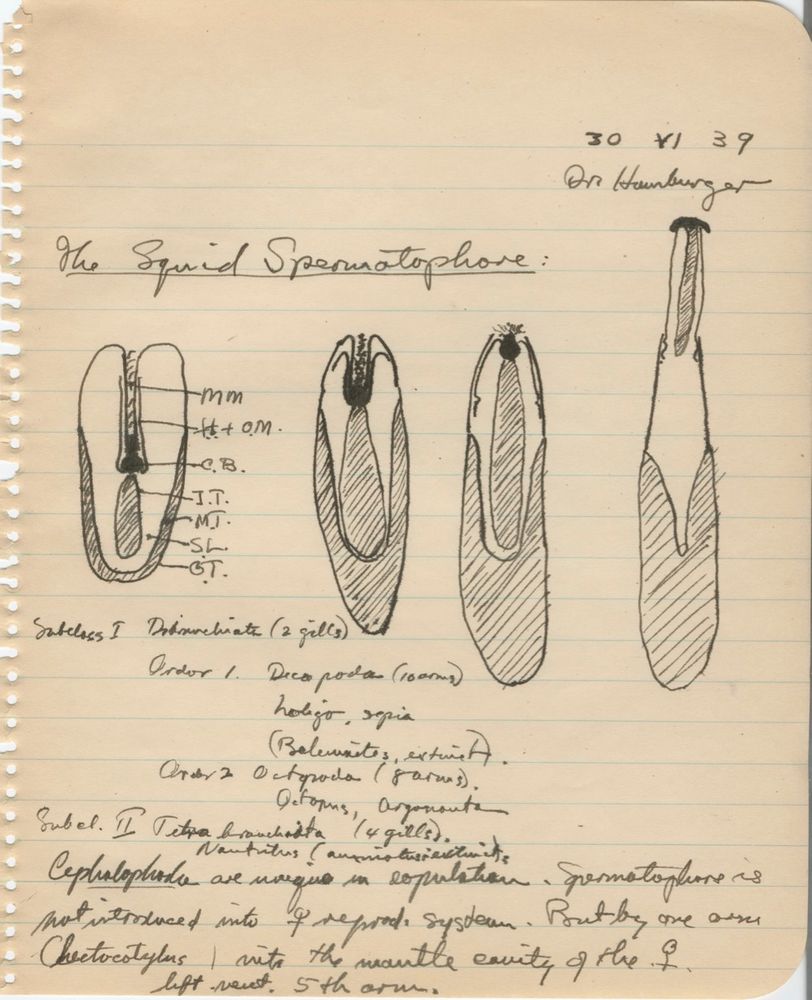 30 VI 39
Dr. Hamburger
The Squid Spermatophore:
MM
H + O.M.
C.B.
I.T.
M.T.
S.L.
O.T.
Subclass I Dibranchiata (2 gills)
Order 1. Decapoda (10 arms)
Loligo, sepia
(Belemnites, extinct).
Order 2 Octopoda (8 arms).
Octopus, Argonauta
Subcl. II Tetrabranchiata (4 gills).
Nautilus (ammonites extinct).
Cephalopoda are unique in copulation. Spermatophore is
not introduced into ♀ reprod. system. But by one arm
(hectocotylus) into the mantle cavity of the ♀.
left vent. 5th arm.